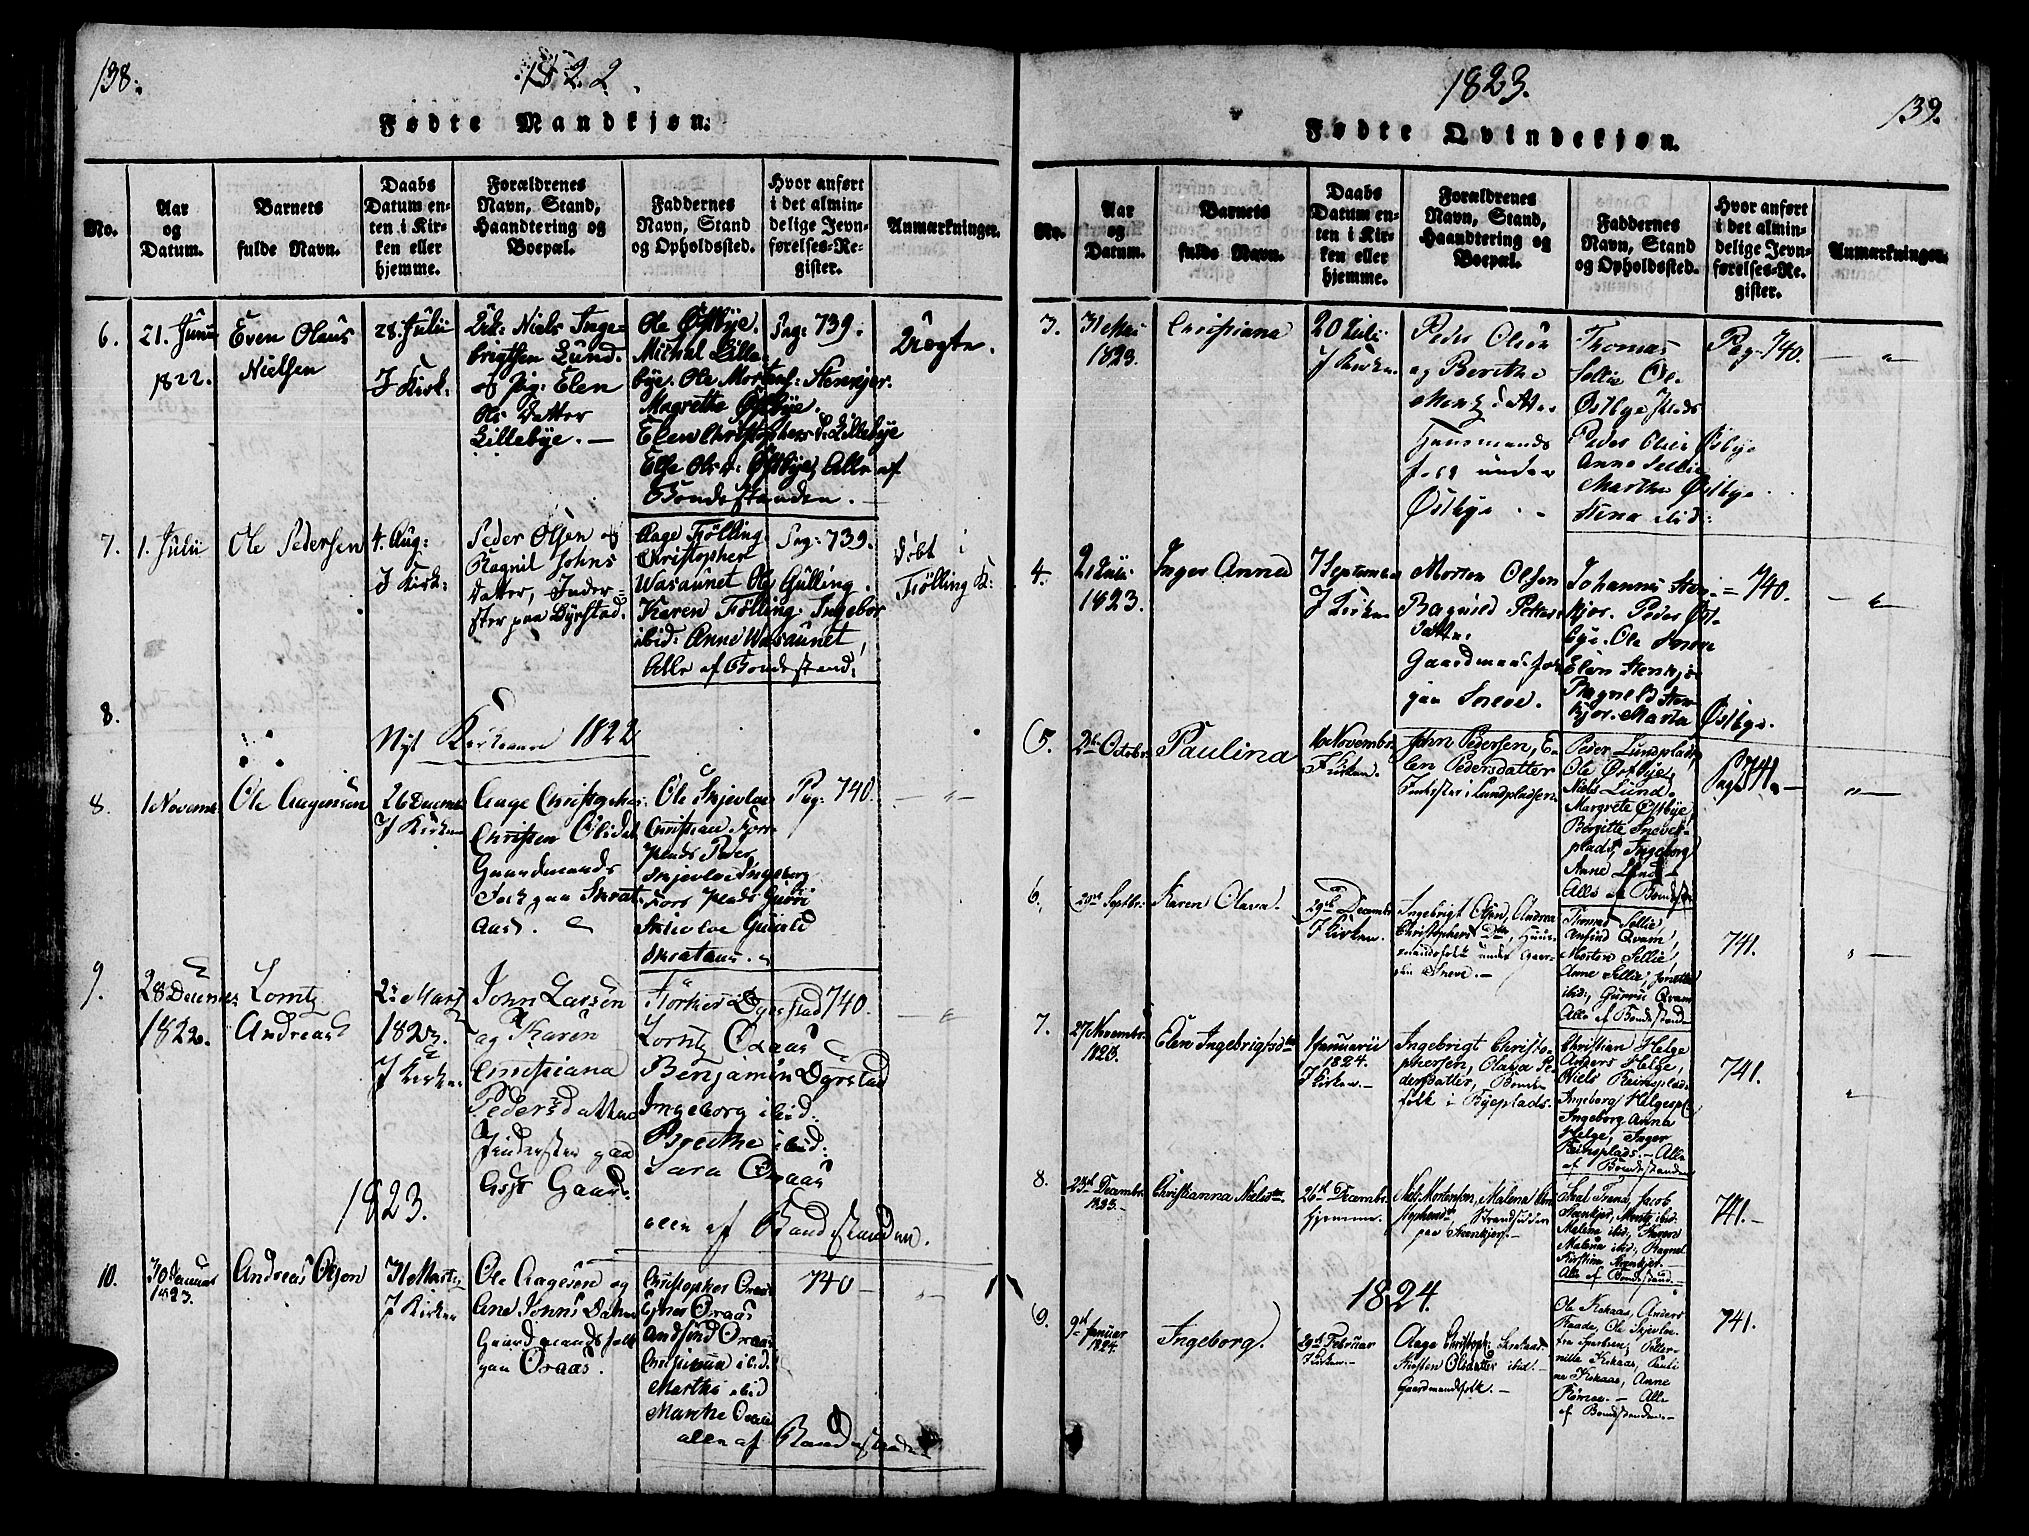 138.
1822.
Fødte Mandkjøn.
No.
Aar
og
Datum.
Barnets
fulde Navn.
Daabs
Datum en-
ten i Kir-
ken eller
hjemme.
Forældrenes
Navn, Stand,
Haandtering og
Boepal.
Faddernes
Navn, Stand
og Opholdssted.
Hvor anført
i det almin-
delige Jevn-
førelses-Re-
gister.
Anmærkninger.
6.
21. Junii
1822.
Even Olaus
Nielsen
28. Julii
J Kirk:
Niels Inge-
brigtsen Lund.
og Pig: Elen
Ols Datter
Lillebye. —
Ole Østbye.
Michal Lille-
bye. Ole Mortens: Stenkjer.
Magrethe Østbye.
Elen Christophers D. Lillebye
Else Olsd: Østbye, Alle af
Bondestanden. —
Pag: 739.
Uægte.
7.
1. Julii
Ole Pedersen
4. Aug:
J Kirk:
Peder Olsen og
Ragnil Johns
Datter, Inder-
ster paa Dyrstad.
Aage Følling.
Christopher
Wasaunet Ole Gulling.
Karen Følling. Ingebor
ibid: Anne Wasaunet,
Alle af Bondestand:
Pag: 739.
Døbt i
Følling K:
8.
Nyt Kirkeaar 1822
8.
1 Novemb
Ole Aagensen
26 Decemb
J Kirken
Aage Christophers
Christen Olsdat
Gaardmands
Folk paa Skrat-
Aas.
Ole Skjevloe
Christian Fors-
plads Peder
Skjevloe Ingeborg
Fors plads Guri
Skjevloe Gunild
Skrataas.
Pag: 740.
9.
28 Decemb
1822.
Lorntz
Andreas
2. Marts
1823.
J Kirken
John Larsen
og Karen
Christiana
Pedersdatter
Inderster paa
Gaard.
Dyrstad
Lorntz Oraas
Benjamin Dyrstad
Ingeborg ibid:
Berthe ibid:
Sara Oraas
alle af Bondestanden.
740
1823.
10.
30 Januar
1823.
Andreas Olson
31 Marts
J Kirken
Ole Aagesen og
Ane Johns Datter
Gaardmands folk
paa Oraas.
Christopher Oraas
Oraas
Andsind Oraas
Christiana ibid.
Martha ibid
Marthe
alle af Bondestanden
740
1823.
139.
Fødte Qvindekjøn.
No.
Aar
og
Datum.
Barnets
fulde Navn.
Daabs
Datum en-
ten i Kir-
ken eller
hjemme.
Forældrenes
Navn, Stand,
Haandtering og
Boepal.
Faddernes
Navn, Stand
og Opholdssted.
Hvor anført
i det almin-
delige Jevn-
førelses-Re-
gister.
Anmærkninger.
3.
31 Mai
1823.
Christiana
20 Julii
J Kirken
Peder Olsen
og Berithe
datter
Huusmands
folk under
Østbye
Thomas
Sellie Ole
Østbye plads
Peder Olsen Østbye
Anne Sellie
Martha Østbye.
Stena ibid:
Pag. 740.
4.
2 Julii
1823.
Inger Anna
7 September
J Kirken
Morten Olsen
Ragnild Petters
datter
Gaardmansfolk
paa Sneve.
Johannes Sten-
kjer. Peder Øst-
bye. Ole Sneve
Elen Stenkjer
Ragneld Sten-
kjer. Marta Østbye.
740.
5.
2de October
Paulina
16 Novembr.
J Kirken.
John Pedersen, E-
len Pedersdatter
Inderster i Lundpladsen.
Peder Lundplads,
Ole Østbye,
Niels Lund.
Margrete Østbye,
Bergitte Sneve-
plads, Ingeborg
Anne Lund —
Alle af Bondest:
Pag. 741.
6.
20de Septbr.
Karen Olava.
29de Decembr.
J Kirken.
Ingebrigt Olsen, Andrea
Christophers Dtr, Huus-
mandsfolk under Gaar-
den Sneve. —
Thomas Sellie,
Ansind Qvam,
Morten Sellie,
Anne Sellie,
ibid:, Gurru Qvam
Alle af Bondestanden
741.
7.
27 Novembr.
1823.
Elen Ingebrigtsdtr
1 Januarii
1824.
J Kirken. —
Ingebrigt Christo-
phersen, Olava Pe-
dersdatter, Bonde-
folk i Byeplads.
Christian Helge
Anders Helge,
Niels Reinsplads
Ingeborg Helgespl.
Ingeborg Anna
Helge, Inger
Reinsplads. — Alle
af Bondestanden
741.
8.
23de Decembr.
1823. —
Christianna Nielsdtr
26de Decembr.
hjemme.
Mortensen, Malena
Strandsidder
paa Steenkjer. —
Jacob
Steenkjer, ibid:
Malena ibid:,
Malena ibid:, Ragnel
Kirstina Steenkjer. —
Alle af Bondestand. —
741. —
1824.
9.
9de Januar
1824.
Ingeborg.
29de Februar
J Kirken. —
Aage Christoph: Skrataas
Kirsten Olsdatter ibid: —
Gaardmandsfolk. —
Ole Kirkaas, Anders
Ole Skjevloe
fra Sparboen, Peller-
nille Kirkaas, Pauli
ne Kirkaas, Anne
— Alle
af Bondestanden. —
741.